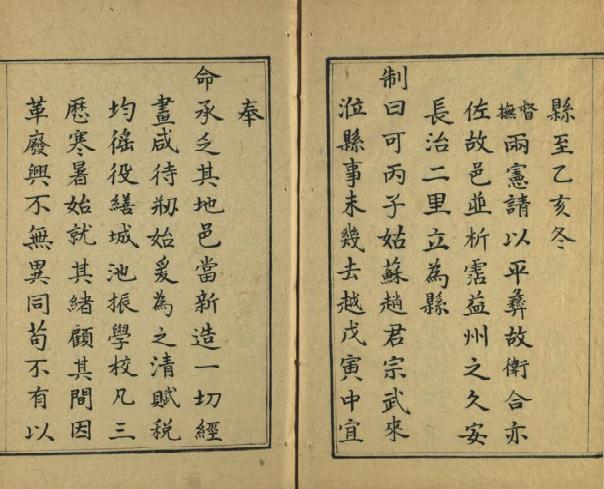 縣至乙亥冬
督撫兩憲請以平彝故衛合亦
佐故邑並析霑益州之久安
長治二里立為縣
制曰可丙子姑蘇趙君宗武來
涖縣事未幾去越戊寅中宜
奉
命承乏其地邑當新造一切經
畫咸待剏始爰為之清賦税
均徭役繕城池振學校凡三
歴寒暑始就其緒顧其間因
革廢興不無異同苟不有以